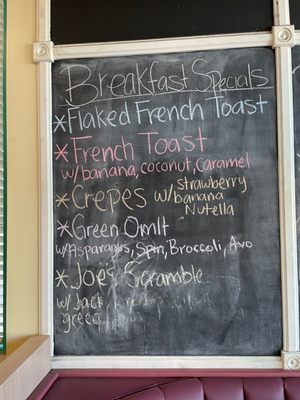 Breakfast Specials
*Flaked French Toast
*French Toast
w/banana, coconut, caramel
*Crepes w/ strawberry
banana
Nutella
*Green Omlt
w/Asparagus, Spin, Broccoli, Avo
*Joe's Scramble
w/ Jack
green